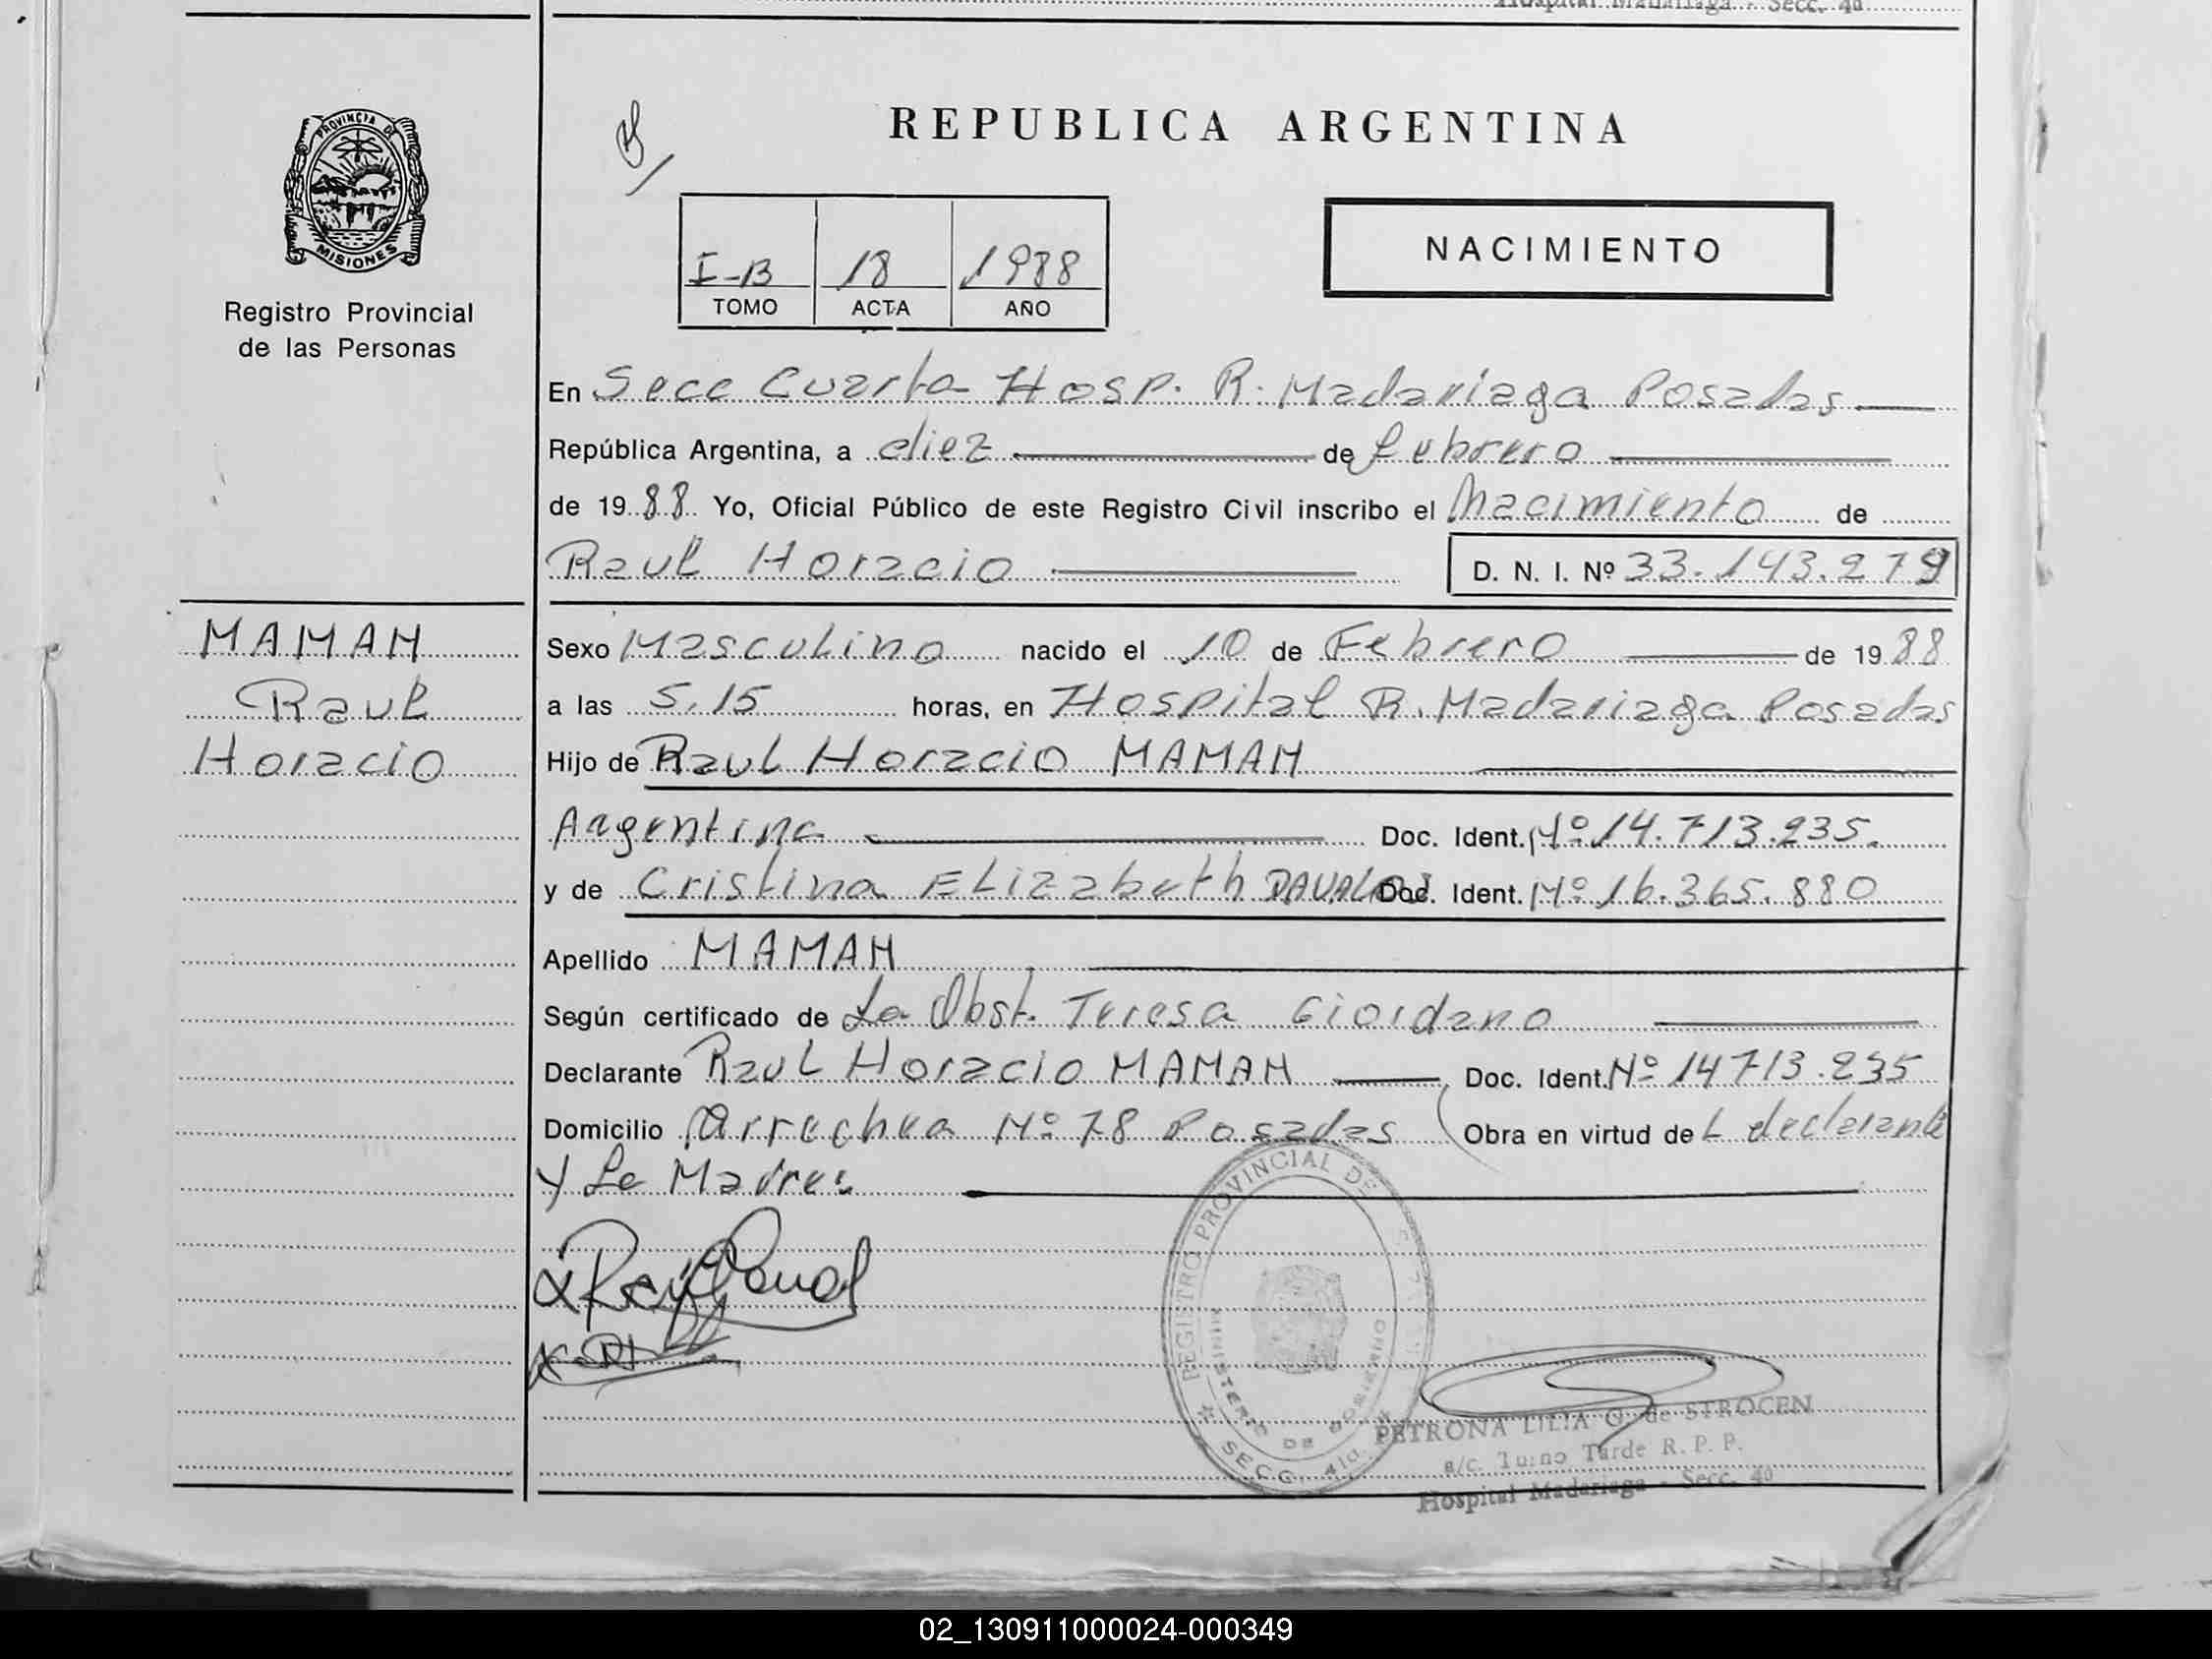 Hospital Madariaga - Secc. 4a
REPUBLICA ARGENTINA
PROVINCIA DE
MISIONES
Registro Provincial
de las Personas
I-B 18 1988
TOMO ACTA AÑO
NACIMIENTO
En Secc Cuarta Hosp. R. Madariaga Posadas
República Argentina, a diez de febrero
de 1988 Yo, Oficial Público de este Registro Civil inscribo el Nacimiento de
Raul Horacio D. N. I. Nº 33.143.279
MAMAN
Raul
Horacio
Sexo Masculino nacido el 10 de Febrero de 1988
a las 5.15 horas, en Hospital R. Madariaga Posadas
Hijo de Raul Horacio MAMAN
Argentina Doc. Ident. Nº 14.713.235.
y de Cristina Elizabeth DAVALOS Doc. Ident. Nº 16.365.880
Apellido MAMAN
Según certificado de La Obst. Teresa Giordano
Declarante Raul Horacio MAMAN Doc. Ident. Nº 14713.235
Domicilio Arrechea Nº 78 Posadas Obra en virtud de L declarante
y La Madre
REGISTRO PROVINCIAL DE
MINISTERIO DE GOBIERNO
SECC. 4ta.
PETRONA LILIA O. de STROCEN
a/c. Turno Tarde R. P. P.
Hospital Madariaga - Secc. 4a
02_130911000024-000349